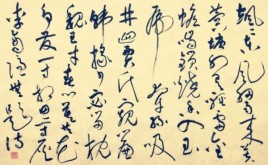 飒飒东风细雨来
芙蓉塘外有轻雷金
蟾啮锁烧香入玉
虎牵丝汲
井回贾氏窥帘
韩掾少宓妃留枕
魏王才春心莫共花
争发一寸相思一寸灰
李商隐无题诗